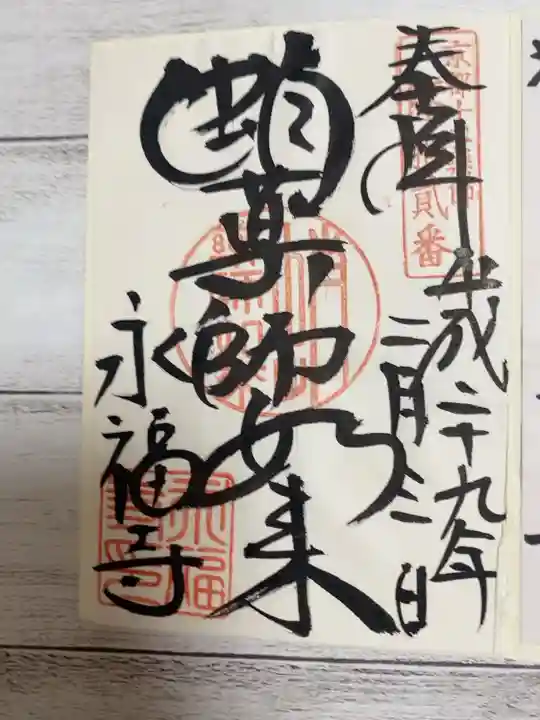 奉拝
平成二十九年
二月三日
貳番
蛸薬師如来
永福寺